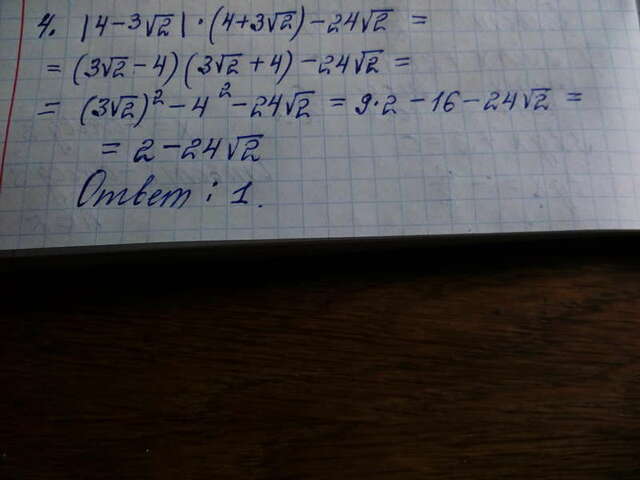 4. |4-3√2|·(4+3√2)-24√2 =
= (3√2-4)(3√2+4)-24√2 =
= (3√2)²-4²-24√2 = 9·2-16-24√2 =
= 2-24√2
Ответ: 1.